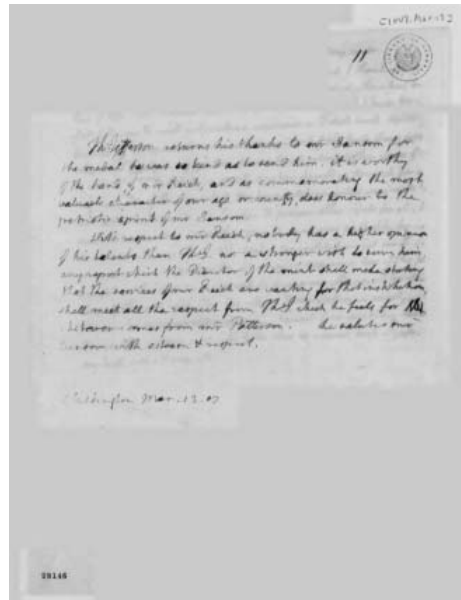 11
Th: Jefferson returns his thanks to mr Sansom for
the medal he was so kind as to send him. it is worthy
of the hand of mr Reich, and as commemorating the most
valuable character of our age or country, does honour to the
patriotic spirit of mr Sansom.
With respect to mr Reich, nobody has a higher opinion
of his talents than Th: J. no a stronger wish to serve him.
any report which the Director of the mint shall make shewing
that the services of mr Reich are wanting for that institution,
shall meet all the respect from Th: J which he feels for
whatever comes from mr Patterson. he salutes mr
Sansom with esteem & respect.
Washington Mar. 13. 07
29146